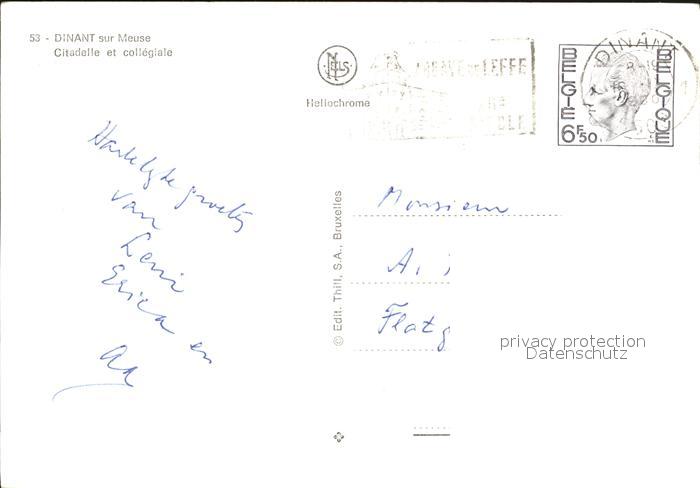 53 - DINANT sur Meuse
Citadelle et collégiale
NELS
Heliochrome
ABBAYE DE LEFFE
DINANT
BELGIE BELGIQUE
6F50
Hartelijke groeten
van
Leni
Erica en
Ad
© Edit. Thill, S.A., Bruxelles
Monsieur
A.
Flatg
privacy protection
Datenschutz